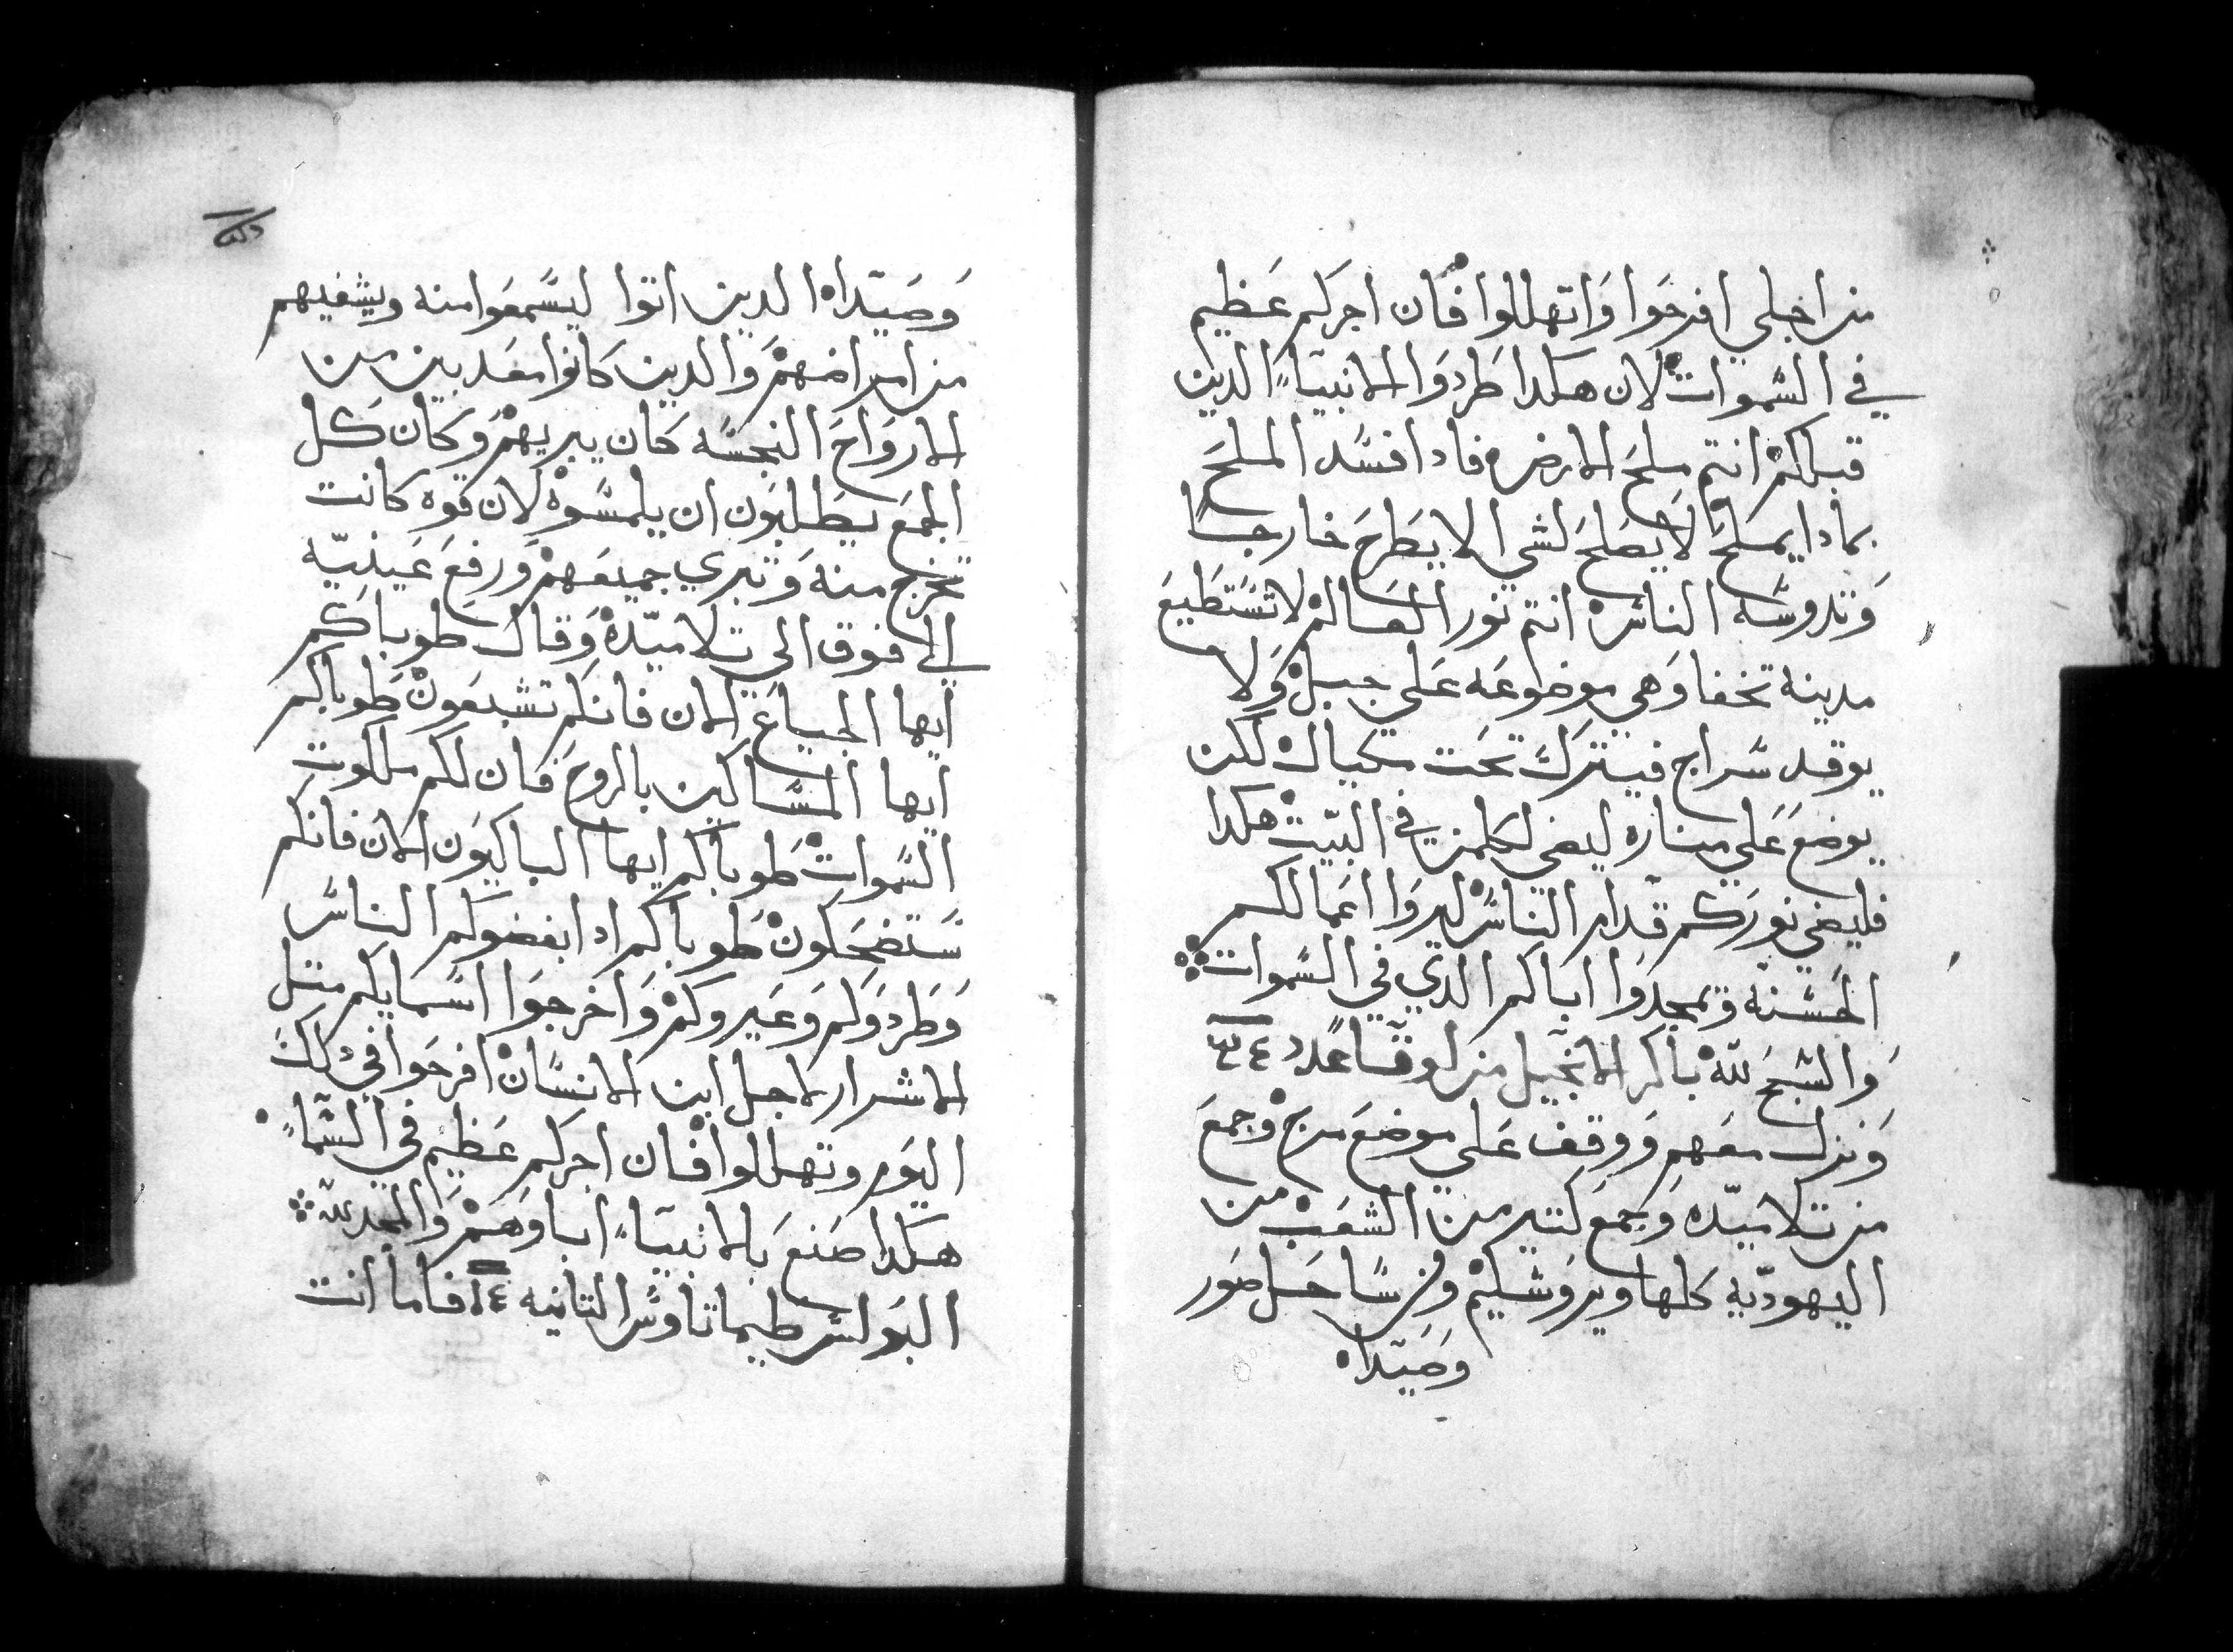 من اجلي افرحوا واتهللوا فان اجركم عظيم
في السموات لان هكدا طردوا الانبياء الدين
قبلكم انتم ملح الارض فادا فسد الملح
بمادا يملح لا يصلح لشي الا يطرح خارجا
وتدوسه الناس انتم نور العالم لا تستطيع
مدينة تخفا وهي موضوعه علي جبل ولا
يوقد سراج فيترك تحت مكيال لكن
يوضع علي مناره ليضي لكلمن في البيت هكدا
فليضي نوركم قدام الناس ليروا اعمالكم
الحسنه ويمجدوا اباكم الدي في السموات
والسبح لله باكر الانجيل من لوقا عدد
ونزل معهم ووقف علي موضع مرج وجمع
من تلاميده وجمع كتير من الشعب من
اليهوديه كلها ويروشليم ومن ساحل صور
وصيدا
وصيدا الدين اتوا ليسمعوا منه ويشفيهم
من امراضهم والدين كانوا معدبين من
الارواح النجسه كان يبريهم وكان كل
الجمع يطلبون ان يلمسوه لان قوه كانت
تخرج منه وتبري جميعهم ورفع عينيه
الي فوق الي تلاميده وقال طوباكم
ايها الجياع الان فانكم تشبعون طوباكم
ايها المساكين بالروح فان لكم ملكوت
السموات طوباكم ايها الباكيون الان فانكم
ستضحكون طوباكم ادا بغضوكم الناس
وطردوكم وعيروكم واخرجوا اسمايكم متل
الاشرار لاجل ابن الانسان افرحوا في دلك
اليوم وتهللوا فان اجركم عظيم في السماء
هكدا صنع بالانبياء اباوهم والمجد لله
البولس طيماتاوس التانيه ١٤ فاما انت